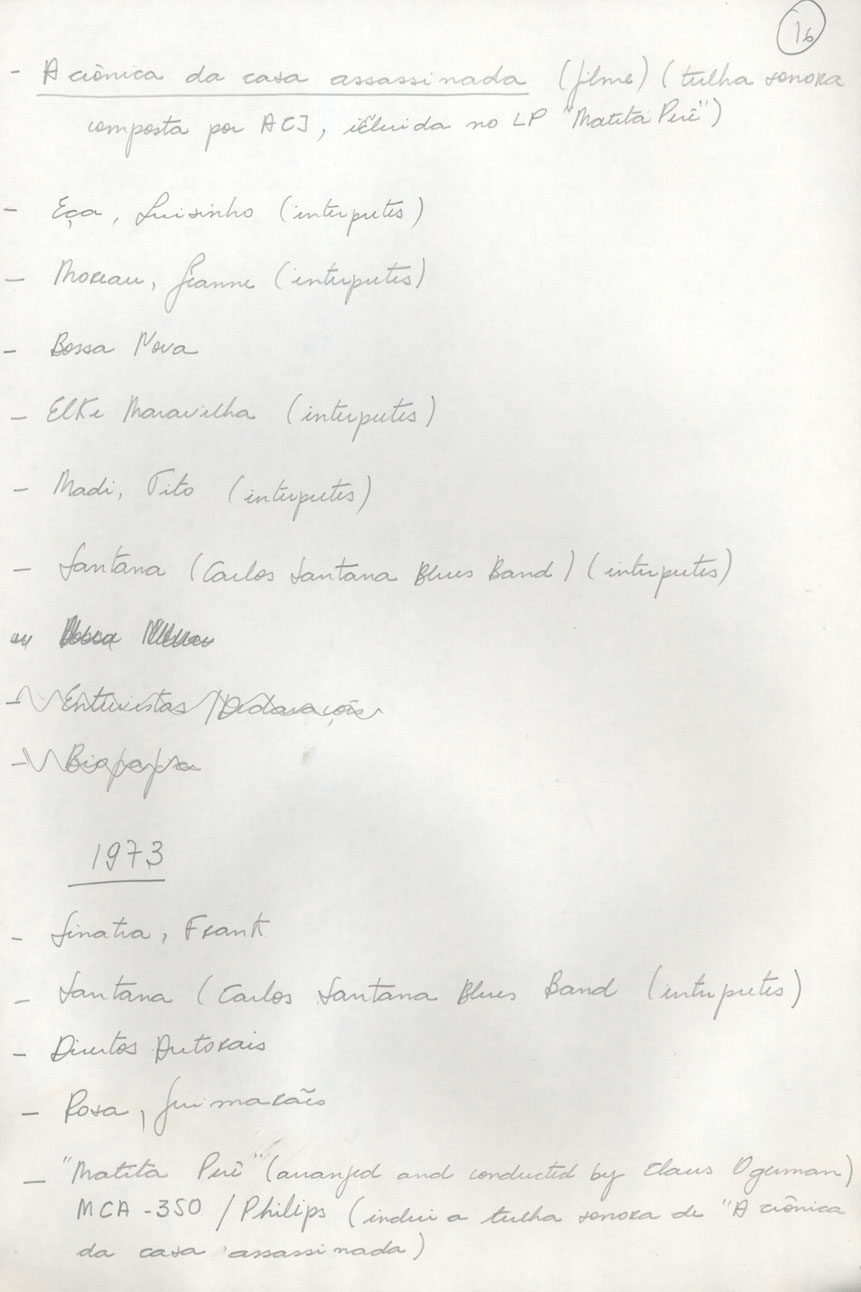 16
- A crônica da casa assassinada (filme) (trilha sonora
composta por ACJ, incluida no LP "Matita Perê")
- Eça, Luisinho (intérpretes)
- Moreau, Jeanne (intérpretes)
- Bossa Nova
- Elke Maravilha (intérpretes)
- Madi, Tito (intérpretes)
- Santana (Carlos Santana Blues Band) (intérpretes)
- Entrevistas / Declarações
- Biografia
1973
- Sinatra, Frank
- Santana (Carlos Santana Blues Band (intérpretes)
- Direitos Autorais
- Rosa, Guimarães
- "Matita Perê" (arranjed and conducted by Claus Ogerman)
MCA - 350 / Philips (inclui a trilha sonora de "A crônica
da casa assassinada)